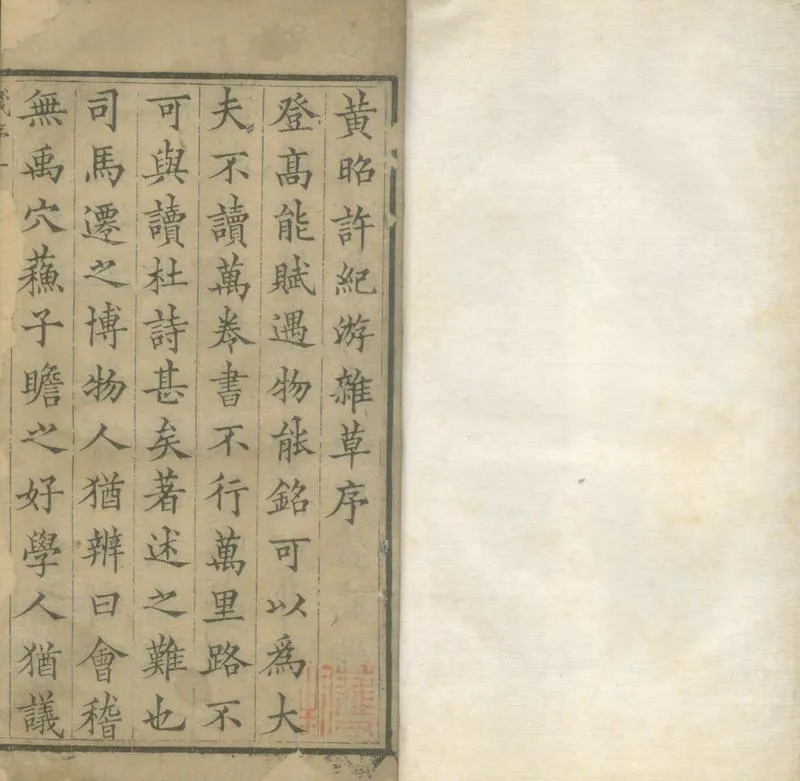 黄昭許紀游雜草序
登髙能賦遇物能銘可以爲大
夫不讀萬卷書不行萬里路不
可與讀杜詩甚矣著述之難也
司馬遷之博物人猶辨曰會稽
無禹穴蘓子瞻之好學人猶議